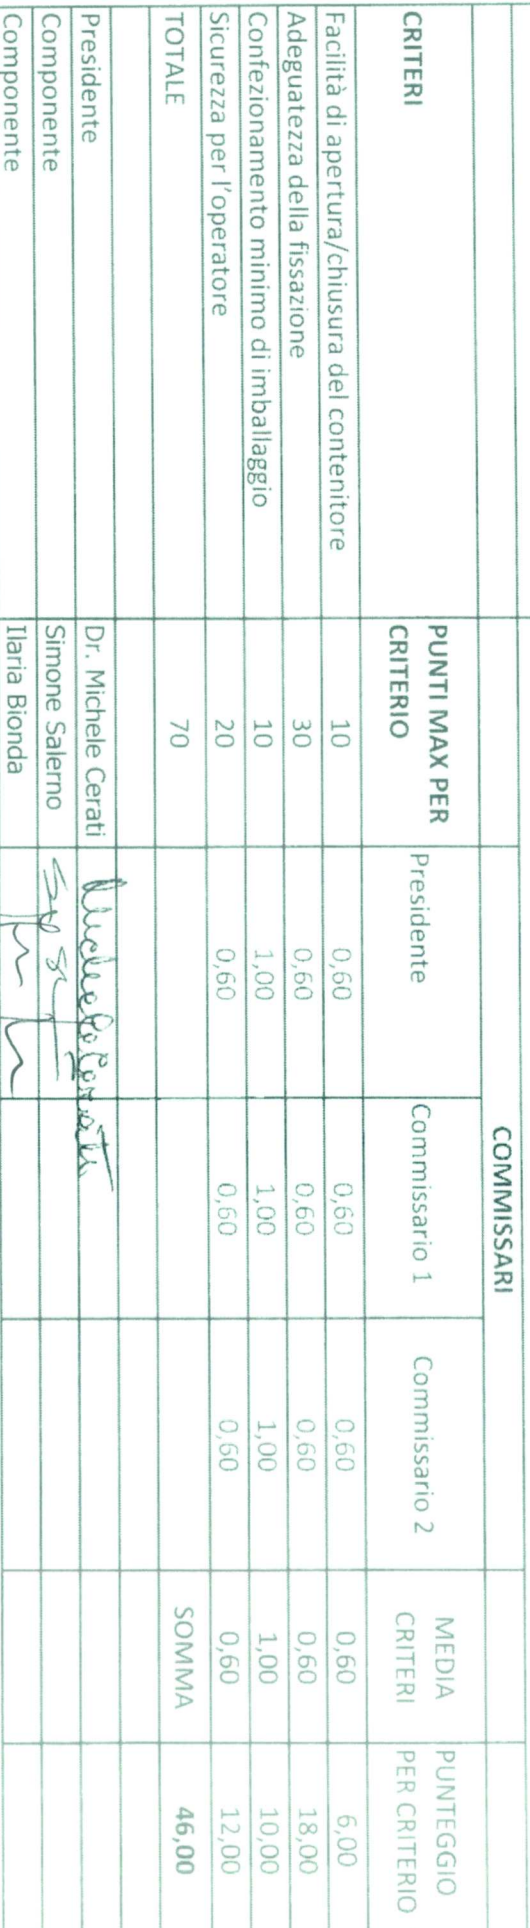 COMMISSARI
CRITERI PUNTI MAX PER CRITERIO Presidente Commissario 1 Commissario 2 MEDIA CRITERI PUNTEGGIO PER CRITERIO
Facilità di apertura/chiusura del contenitore 10 0,60 0,60 0,60 0,60 6,00
Adeguatezza della fissazione 30 0,60 0,60 0,60 0,60 18,00
Confezionamento minimo di imballaggio 10 1,00 1,00 1,00 1,00 10,00
Sicurezza per l'operatore 20 0,60 0,60 0,60 0,60 12,00
TOTALE 70 SOMMA 46,00
Presidente Dr. Michele Cerati Michele Cerati
Componente Simone Salerno
Componente Ilaria Bionda